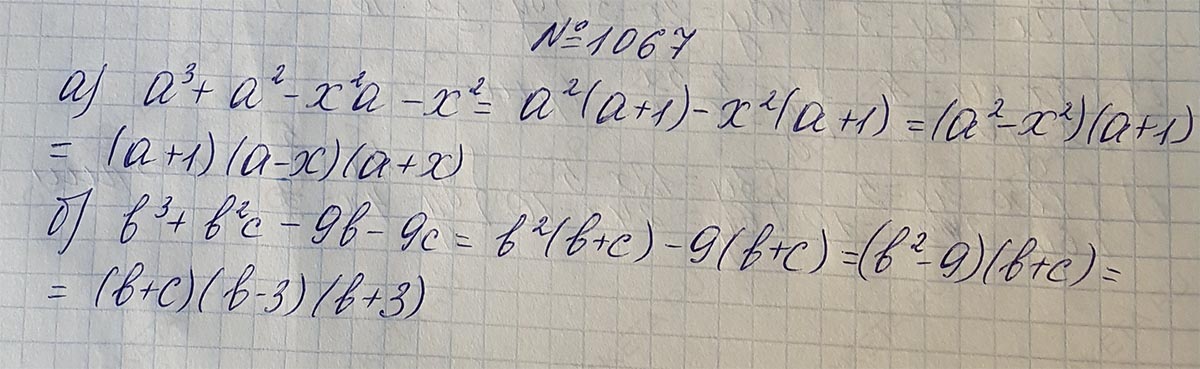 №1067
а) a³ + a² - x²a - x² = a²(a+1) - x²(a+1) = (a²-x²)(a+1)
= (a+1)(a-x)(a+x)
б) b³ + b²c - 9b - 9c = b²(b+c) - 9(b+c) = (b²-9)(b+c) =
= (b+c)(b-3)(b+3)